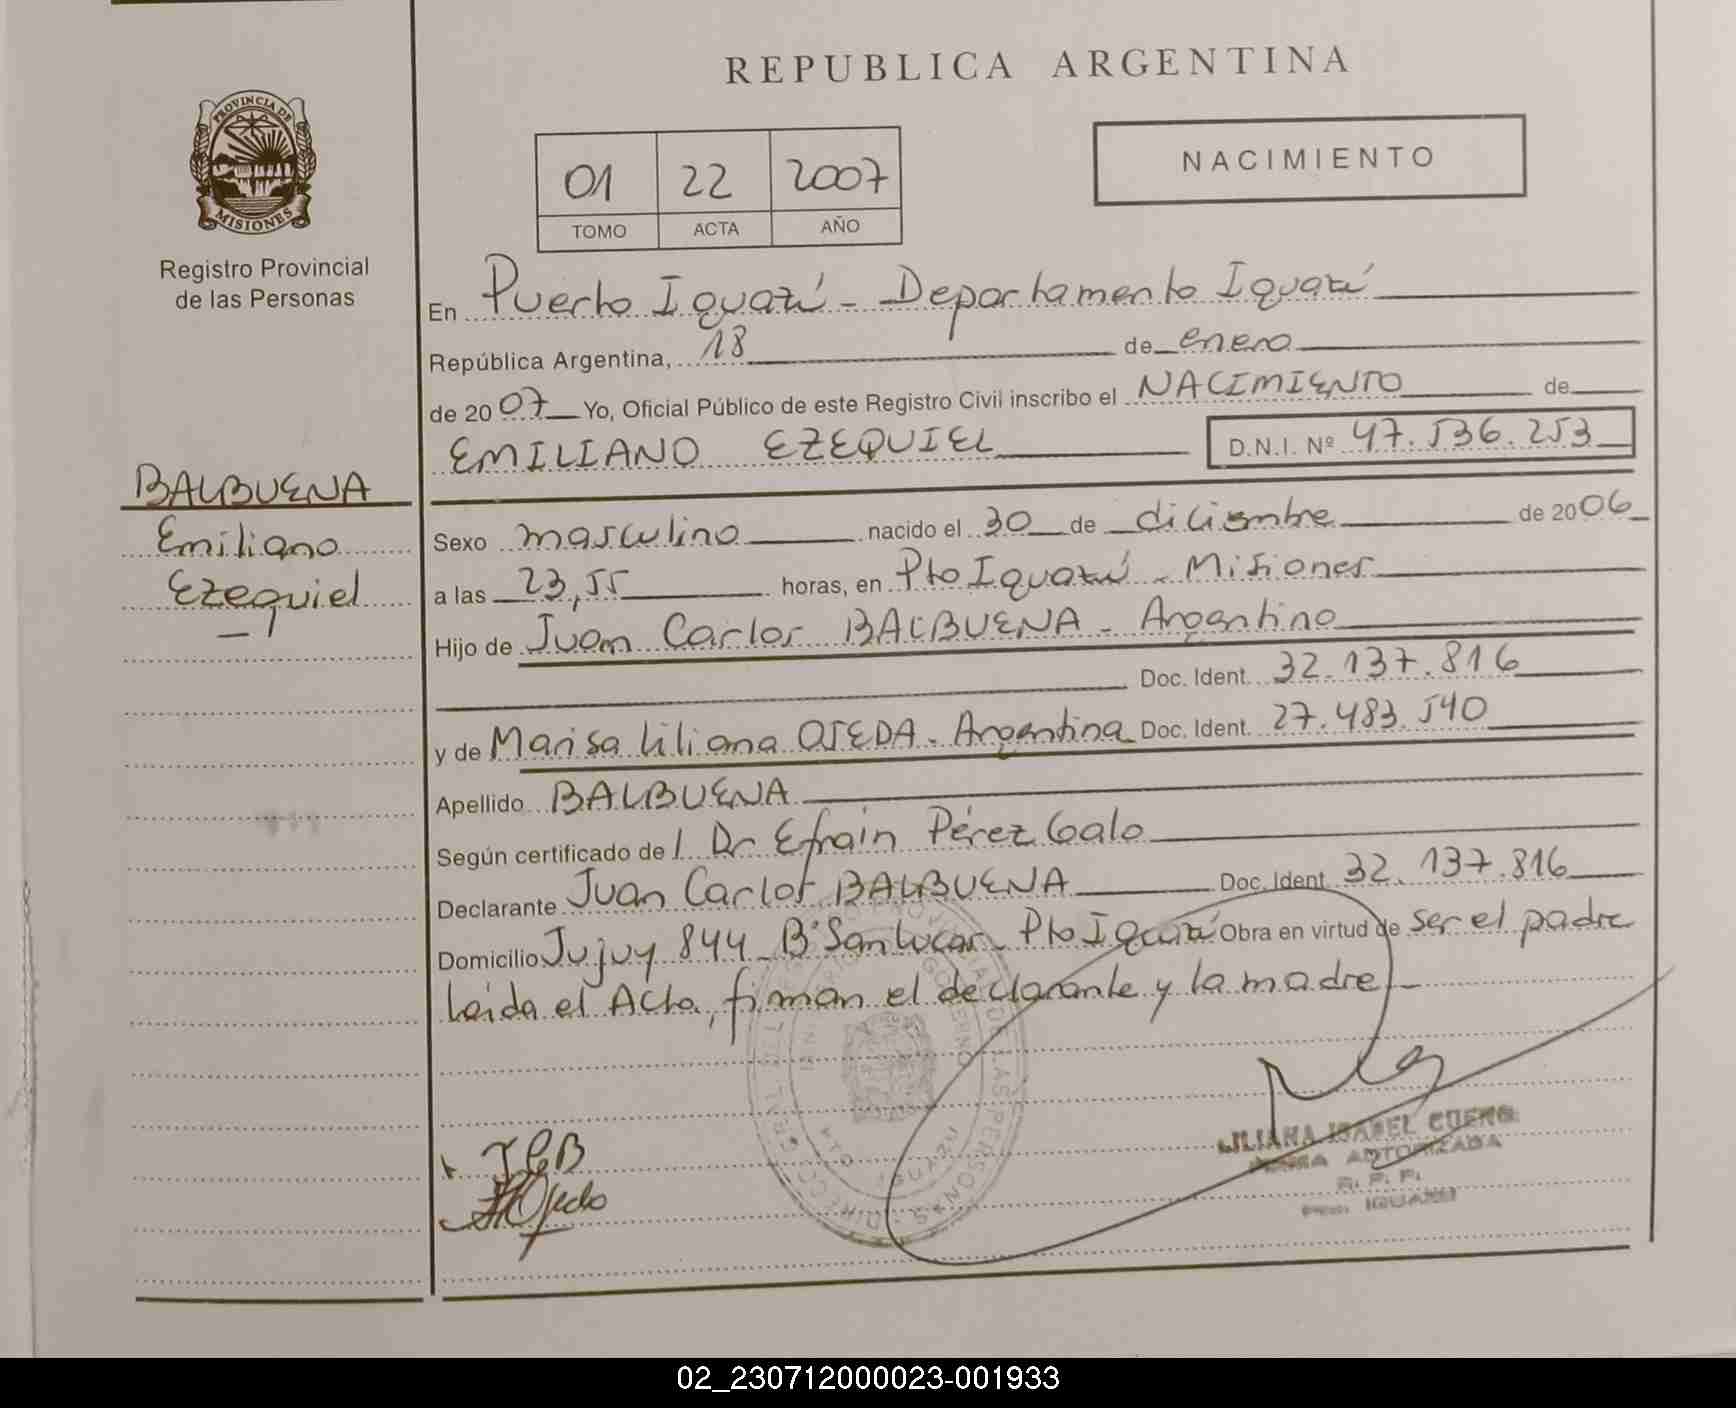 REPUBLICA ARGENTINA
PROVINCIA DE
MISIONES
Registro Provincial
de las Personas
01 22 2007
TOMO ACTA AÑO
NACIMIENTO
En Puerto Iguazú - Departamento Iguazú
República Argentina, 18 de enero
de 2007 Yo, Oficial Público de este Registro Civil inscribo el NACIMIENTO de
EMILIANO EZEQUIEL D.N.I. Nº 47.536.253
BALBUENA
Emiliano
Ezequiel
Sexo masculino nacido el 30 de diciembre de 2006
a las 23,55 horas, en Pto Iguazú - Misiones
Hijo de Juan Carlos BALBUENA - Argentino
Doc. Ident. 32.137.816
y de Marisa Liliana OJEDA - Argentina Doc. Ident. 27.483.540
Apellido BALBUENA
Según certificado de l Dr Efraín Pérez Galo
Declarante Juan Carlos BALBUENA Doc. Ident. 32.137.816
Domicilio Jujuy 844 Bº San Lucar - Pto Iguazú Obra en virtud de ser el padre
Leida el Acta, firman el declarante y la madre -
J C B
Ojeda
LILIANA ISABEL
FIRMA AUTORIZADA
R. P. P.
IGUAZU
02_230712000023-001933